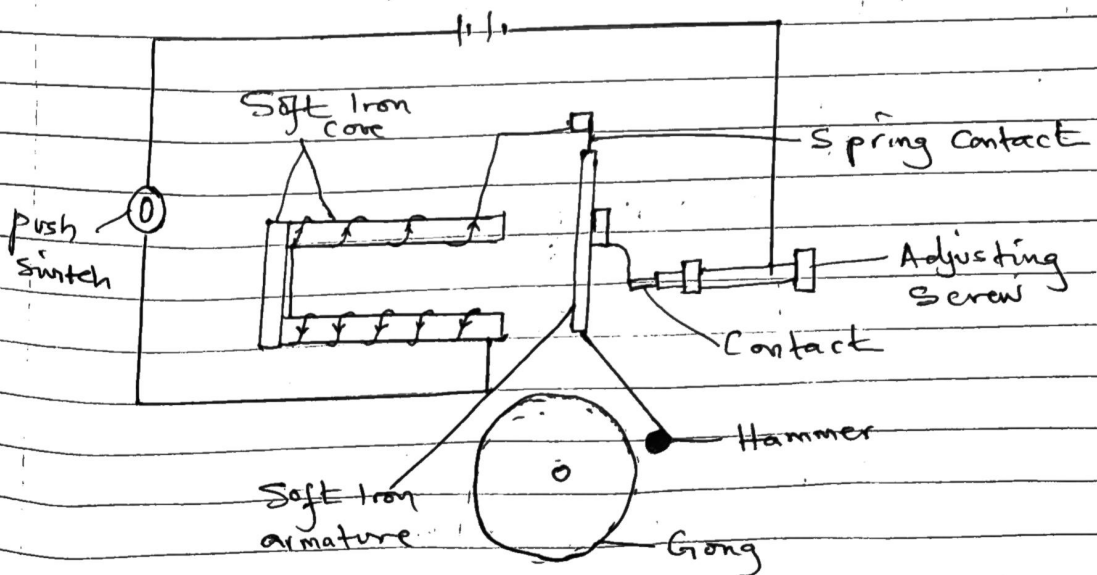 Soft Iron
core
Spring Contact
push
switch
Adjusting
Screw
Contact
Hammer
Soft Iron
armature
Gong